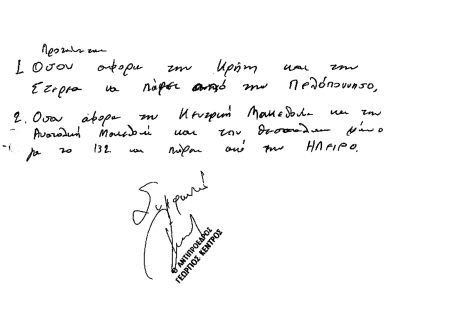 Προτείνεται
1. Οσον αφορα την Κρήτη και την
Στερεα να πάρει από την Πελοπόννησο,
2. Οσον αφορα τη Κεντρική Μακεδονία και την
Ανατολική Μακεδονία και την Θεσσαλία μόνο
με το 132 και πάρει από την ΗΠΕΙΡΟ.
Ο ΑΝΤΙΠΡΟΕΔΡΟΣ
ΓΕΩΡΓΙΟΣ ΚΕΝΤΡΟΣ